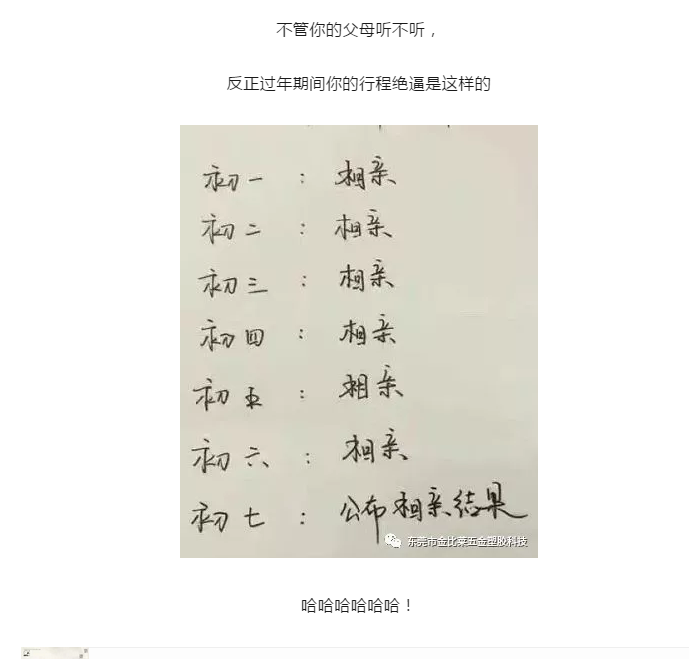 不管你的父母听不听，
反正过年期间你的行程绝逼是这样的
初一：相亲
初二：相亲
初三：相亲
初四：相亲
初五：相亲
初六：相亲
初七：公布相亲结果
东莞市金比莱五金塑胶科技
哈哈哈哈哈哈！